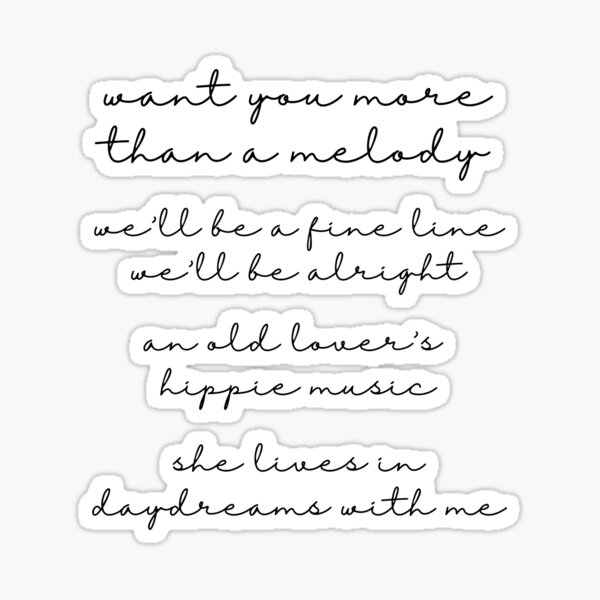 want you more
than a melody
we'll be a fine line
we'll be alright
an old lover's
hippie music
she lives in
daydreams with me